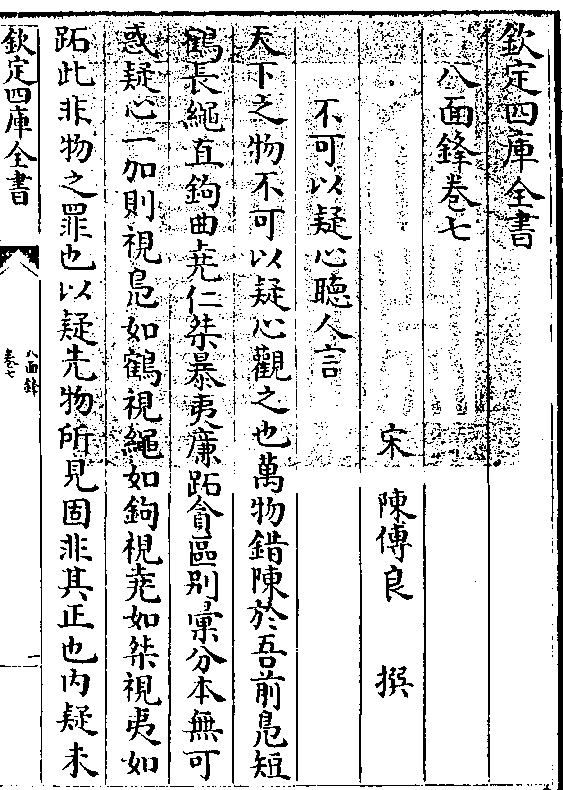 欽定四庫全書
八面鋒卷七
宋 陳傅良 撰
不可以疑心聽人言
天下之物不可以疑心觀之也萬物錯陳於吾前鳧短
鶴長繩直鉤曲堯仁桀暴夷廉跖貪區别彙分本無可
惑疑心一加則視鳧如鶴視繩如鉤視堯如桀視夷如
跖此非物之罪也以疑先物所見固非其正也内疑未
欽定四庫全書
八面鋒
卷七
一